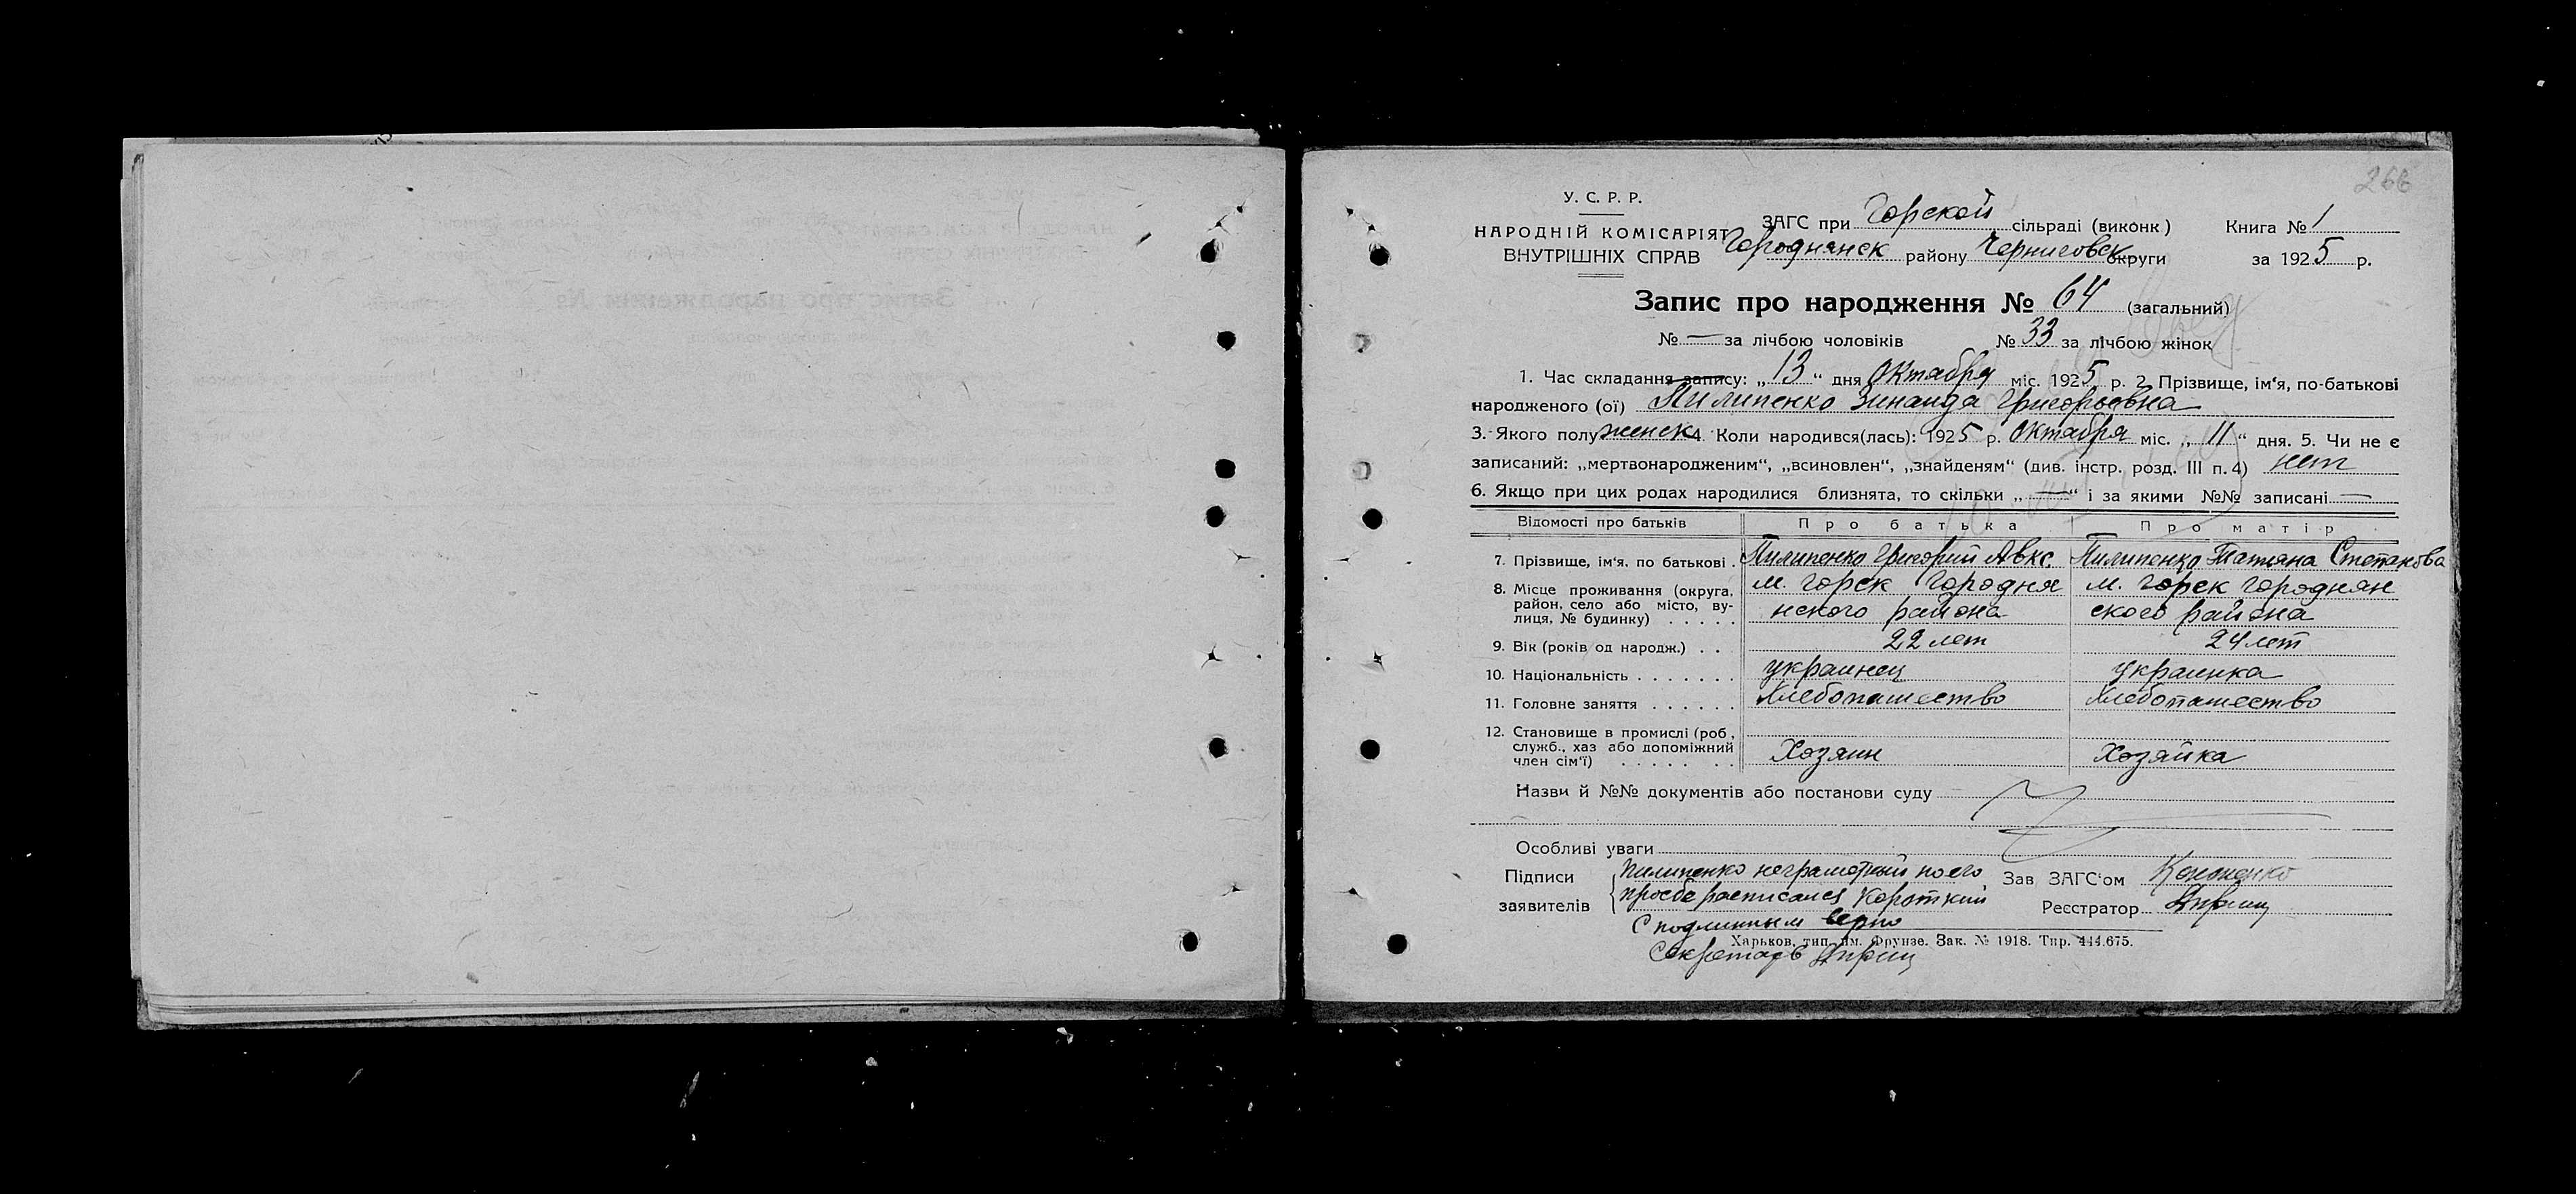 266
У. С. Р. Р.
НАРОДНІЙ КОМІСАРІЯТ
ВНУТРІШНІХ СПРАВ
ЗАГС при Горской сільраді (виконк) Книга № 1
Городнянск району Черниговск округи за 1925 р.
Запис про народження № 64 (загальний)
№ — за лічбою чоловіків № 33 за лічбою жінок
1. Час складання запису: „13“ дня Октября міс. 1925 р. 2. Прізвище, ім‘я, по-батькові
народженого (ої) Пилипенко Зинаида Григорьевна
3. Якого полу женск 4. Коли народився(лась): 1925 р. Октября міс. „11“ дня. 5. Чи не є
записаний: „мертвонародженим“, „всиновлен“, „знайденям“ (див. інстр. розд. III п. 4) нет
6. Якщо при цих родах народилися близнята, то скільки „—“ і за якими №№ записані —
Відомості про батьків Про батька Про матір
7. Прізвище, ім‘я, по батькові . Пилипенко Григорий Авкс. Пилипенко Татяна Степанова
8. Місце проживання (округа, м. Горск Городня м. Горск Городнян
район, село або місто, ву- нского района ского района
лиця, № будинку) . . . . .
9. Вік (років од народж.) . . 22 лет 24 лет
10. Національність . . . . . . . украинец украинка
11. Головне заняття . . . . . . Хлебопашество Хлебопашество
12. Становище в промислі (роб.,
служб., хаз або допоміжний Хозяин Хозяйка
член сім‘ї) . . . . . . .
Назви й №№ документів або постанови суду
Особливі уваги
Підписи Пилипенко неграмотный по его Зав ЗАГС‘ом Кононенко
заявителів просбе расписался Короткий Реєстратор
С подлинным верно
Харьков, тип. им. Фрунзе. Зак. № 1918. Тир. 444.675.
Секретарь